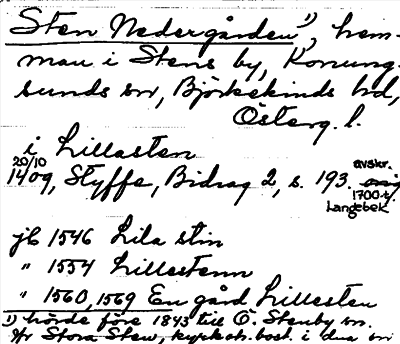 Sten Nedergården¹), hem-
man i Stens by, Konung-
sunds sn, Björkekinds hd,
Österg. l.
i Lillasten
20/10 1409, Styffe, Bidrag 2, s. 193. avskr. 1700-t. Langebek
jb 1546 Lila stin
" 1554 Lillestenn
" 1560, 1569 En gård Lillesten
1) hörde före 1843 till Ö. Stenby sn.
Stora Sten, kyrkoh. bost. i dna sn